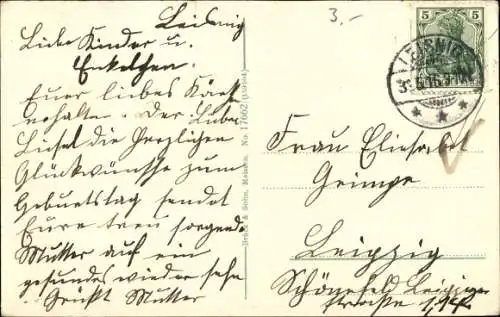 3.-
Leisnig
Liebe Kinder u.
Enkelchen.
Euer liebes Karte
erhalten. Der Liebe
die Herzlichen
Glückwünsche zum
Geburtstag sendet
Eure treu sorgende
Mutter auf ein
gesundes wieder sehn
Grüßt Mutter
Brück & Sohn, Meissen. No 17662
5 5
LEISNIG
Frau Elisabet
Grimpe
Leipzig
Schönefeld Leipziger
strasse